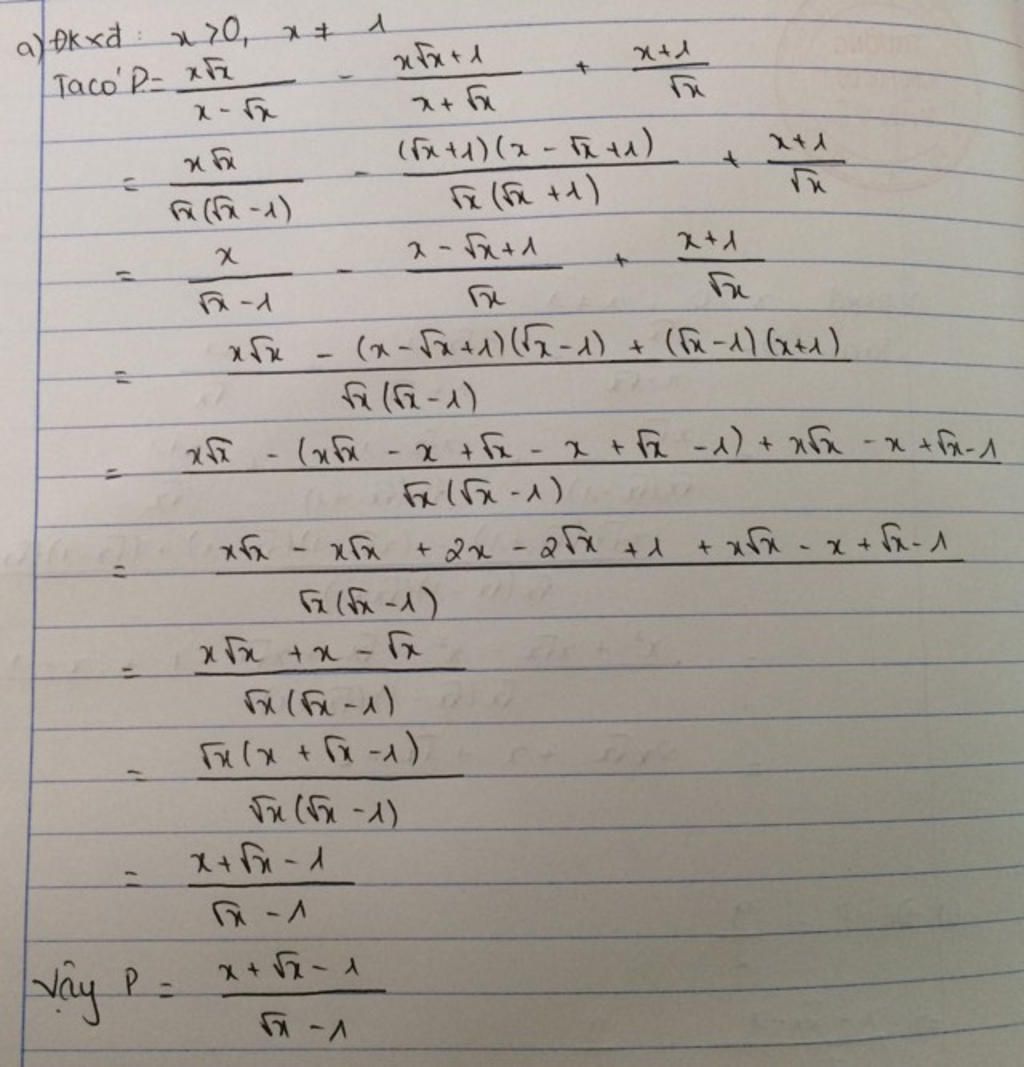 a) ĐKXĐ: x > 0, x ≠ 1
Ta có P = x√x / (x - √x) - (x√x + 1) / (x + √x) + (x + 1) / √x
= x√x / √x(√x - 1) - (√x + 1)(x - √x + 1) / √x(√x + 1) + (x + 1) / √x
= x / (√x - 1) - (x - √x + 1) / √x + (x + 1) / √x
= x√x - (x - √x + 1)(√x - 1) + (√x - 1)(x + 1) / √x(√x - 1)
= x√x - (x√x - x + √x - x + √x - 1) + x√x - x + √x - 1 / √x(√x - 1)
= x√x - x√x + 2x - 2√x + 1 + x√x - x + √x - 1 / √x(√x - 1)
= x√x + x - √x / √x(√x - 1)
= √x(x + √x - 1) / √x(√x - 1)
= x + √x - 1 / √x - 1
Vậy P = x + √x - 1 / √x - 1